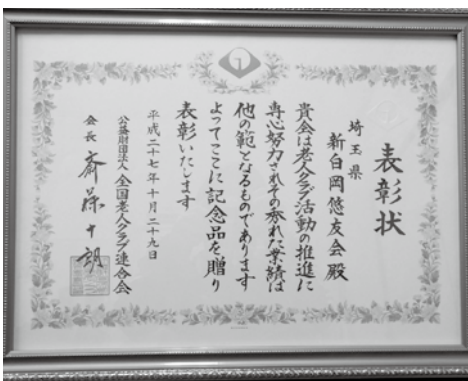 表彰状
埼玉県
新白岡悠友会殿
貴会は老人クラブ活動の推進に
専心努力されその秀れた業績は
他の範となるものであります
よってここに記念品を贈り
表彰いたします
平成二十七年十月二十九日
公益財団法人 全国老人クラブ連合会
会長 斎藤十朗